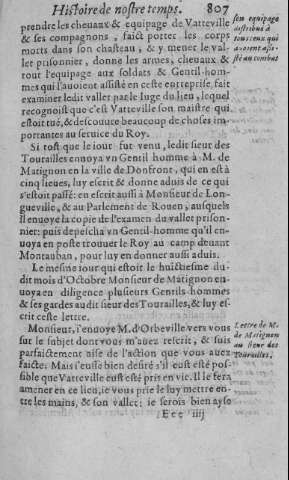 Histoire de nostre temps. 807
prendre les cheuaux & equipage de Vatteville
& ses compagnons, faict porter les corps
morts dans son chasteau, & y mener le val-
let prisonnier, donne les armes, cheuaux &
tout l'equipage aux soldats & Gentil-hom-
mes qui l'auoient assisté en ceste entreprise, fait
examiner ledit vallet par le Iuge du lieu, lequel
recognoist que c'est Vatteville son maistre qui
estoit tué, & descouure beaucoup de choses im-
portantes au seruice du Roy.
Si tost que le iour fut venu, ledit sieur des
Tourailles enuoya vn Gentil homme à M. de
Matignon en la ville de Donfront, qui en est à
cinq lieues, luy escrit & donne aduis de ce qui
s'estoit passé: en escrit aussi à Monsieur de Lon-
gueville, & au Parlement de Rouen, ausquels
il enuoye la copie de l'examen du vallet prison-
nier: puis depescha vn Gentil-homme qu'il en-
uoya en poste trouuer le Roy au camp deuant
Montauban, pour luy en donner aussi aduis.
Le mesme iour qui estoit le huictiesme du-
dit mois d'Octobre Monsieur de Matignon en-
uoya en diligence plusieurs Gentils-hommes
& ses gardes audit sieur des Tourailles, & luy es-
crit ceste lettre.
Monsieur, i'enuoye M. d'Orbeville vers vous
sur le subjet dont vous m'auez rescrit, & suis
parfaictement aise de l'action que vous auez
faicte: Mais i'eusse bien desiré s'il eust esté pos-
sible que Vatteville eust esté pris en vie. Il le fera
amener en ce lieu, ie vous prie le luy mettre en-
tre les mains, & son vallet; ie serois bien ayse
Eee iiij
son equipage
distribué à
tous ceux qui
auoient assi-
sté au combat
Lettre de M.
de Matignon
au sieur des
Tourailles.